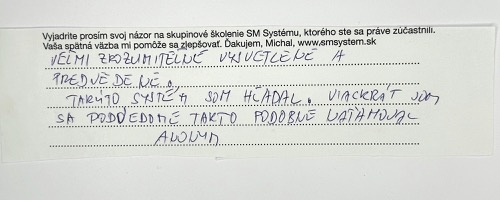 Vyjadrite prosím svoj názor na skupinové školenie SM Systému, ktorého ste sa práve zúčastnili.
Vaša spätná väzba mi pomôže sa zlepšovať. Ďakujem, Michal, www.smsystem.sk
VEĽMI ZROZUMITEĽNE VYSVETLENÉ A
PREDVEDENÉ.
TAKÚTO SYSTÉM SOM HĽADAL. VIACKRÁT SOM
SA PODVEDOME TAKTO PODOBNE NAŤAHOVAL
ANONYM